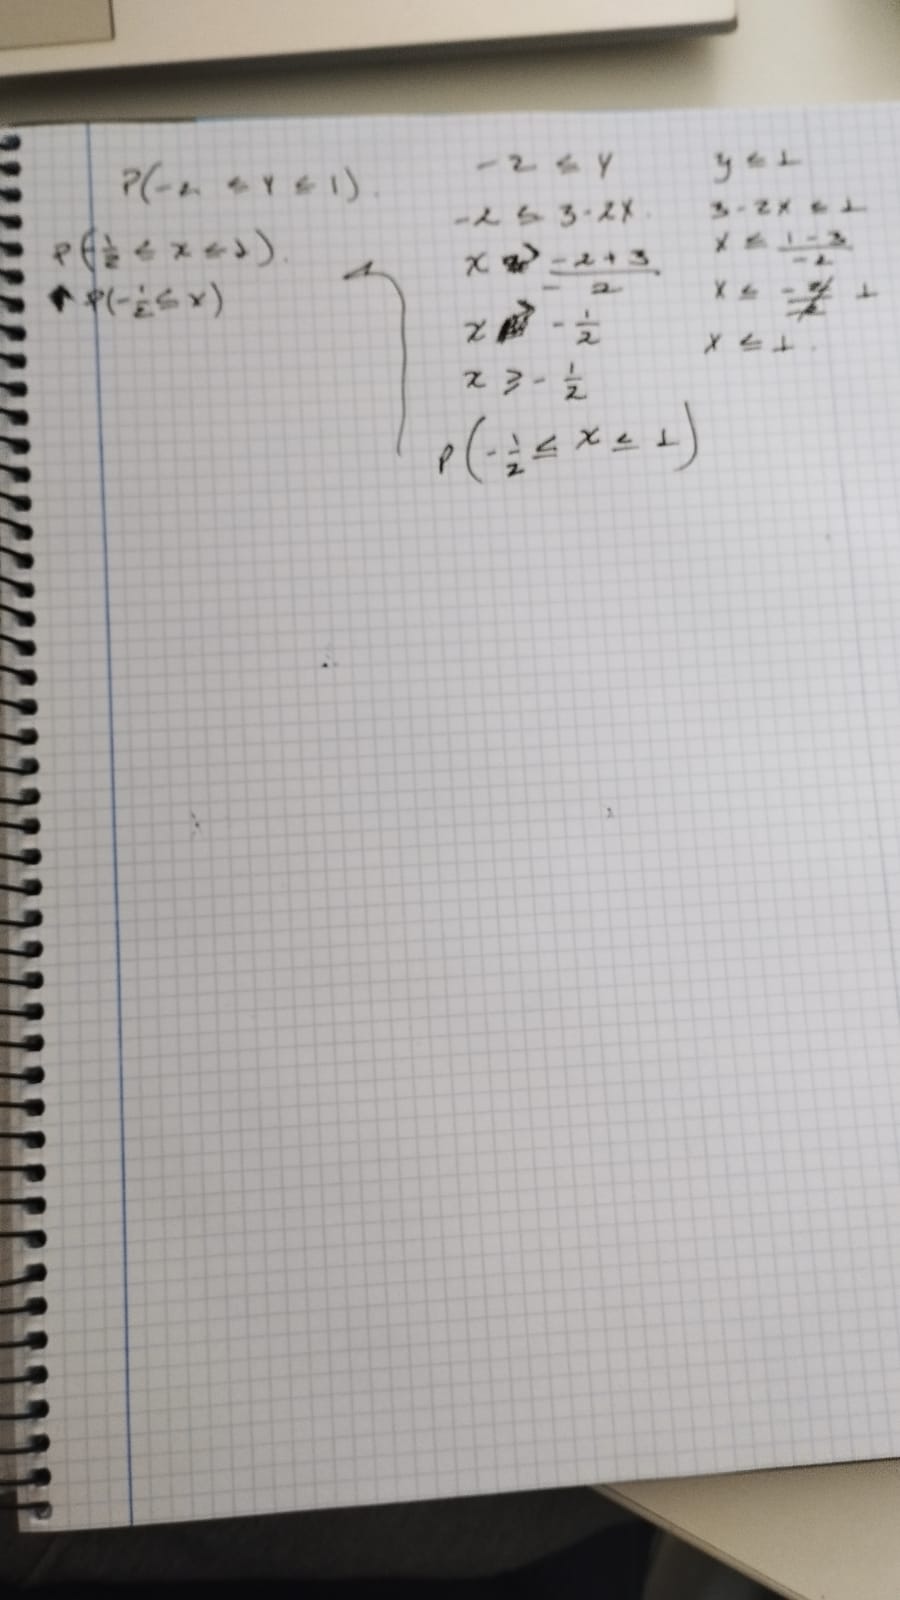 P(-2 ≤ Y ≤ 1).
P(-1/2 ≤ x ≤ 1).
P(-1/2 ≤ x)
-2 ≤ Y
-2 ≤ 3-2X.
x ≥ -2+3/-2
x -1/2
x ≥ -1/2
P(-1/2 ≤ x ≤ 1)
y ≤ 1
3-2X ≤ 1
X ≤ 1-3/-2
X ≤ 1
X ≤ 1.